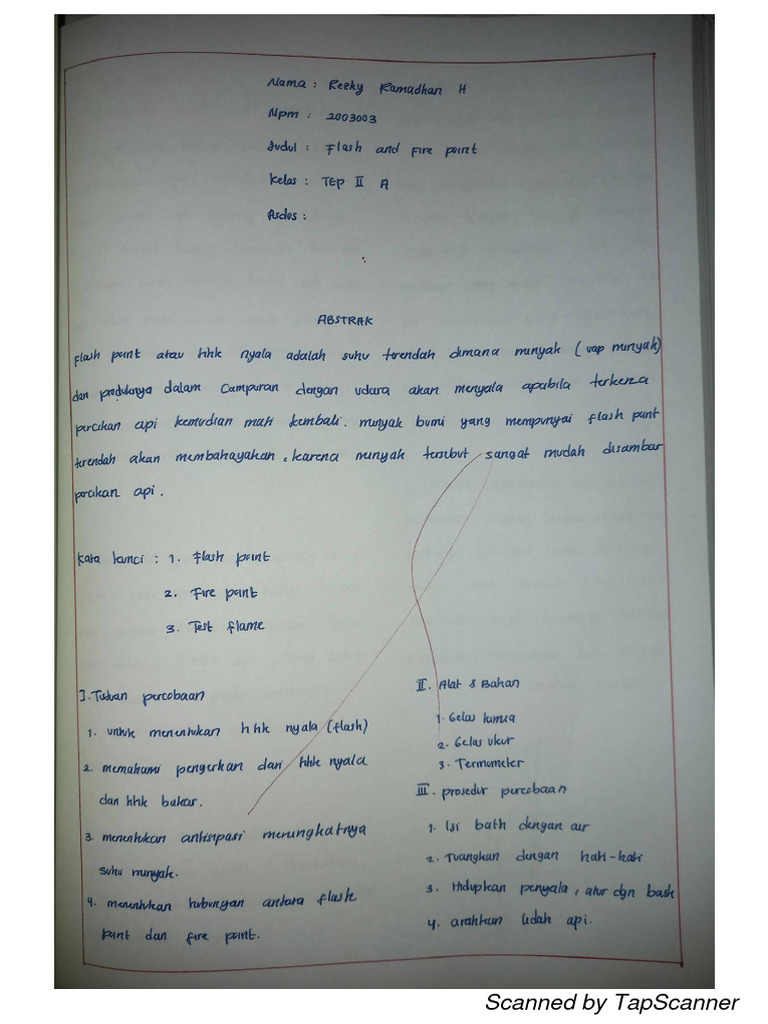 Nama : Rezky Ramadhan H
Npm : 2003003
Judul : Flash and Fire point
Kelas : TEP II A
Asdos :
ABSTRAK
Flash point atau titik nyala adalah suhu terendah dimana minyak (uap minyak)
dan produknya dalam campuran dengan udara akan menyala apabila terkena
percikan api kemudian mati kembali. minyak bumi yang mempunyai flash point
terendah akan membahayakan, karena minyak tersebut sangat mudah disambar
percikan api.
Kata kunci : 1. Flash point
2. Fire point
3. Test flame
I. Tujuan percobaan
1. untuk menentukan titik nyala (flash)
2. memahami pengertian dari titik nyala
dan titik bakar.
3. menentukan antisipasi meningkatnya
suhu minyak.
4. menentukan hubungan antara flash
point dan fire point.
II. Alat & Bahan
1. Gelas kimia
2. Gelas ukur
3. Termometer
III. prosedur percobaan
1. Isi bath dengan air
2. Tuangkan dengan hati-hati
3. Hidupkan penyala, atur dgn baik
4. arahkan lidah api.
Scanned by TapScanner